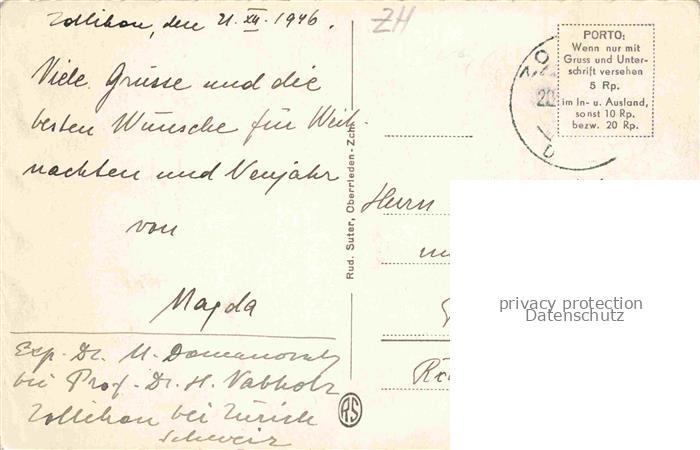 Zollikon, den 21. XII. 1946.
ZH
Viele Grüsse und die
besten Wünsche für Weih-
nachten und Neujahr
von
Magda
Exp. Dr. M. Domanovszky
bei Prof. Dr. H. Nabholz
Zollikon bei Zürich
Schweiz
Rud. Suter, Oberrieden-Zch.
RS
PORTO:
Wenn nur mit
Gruss und Unter-
schrift versehen
5 Rp.
im In- u. Ausland,
sonst 10 Rp.
bezw. 20 Rp.
Herrn
privacy protection
Datenschutz